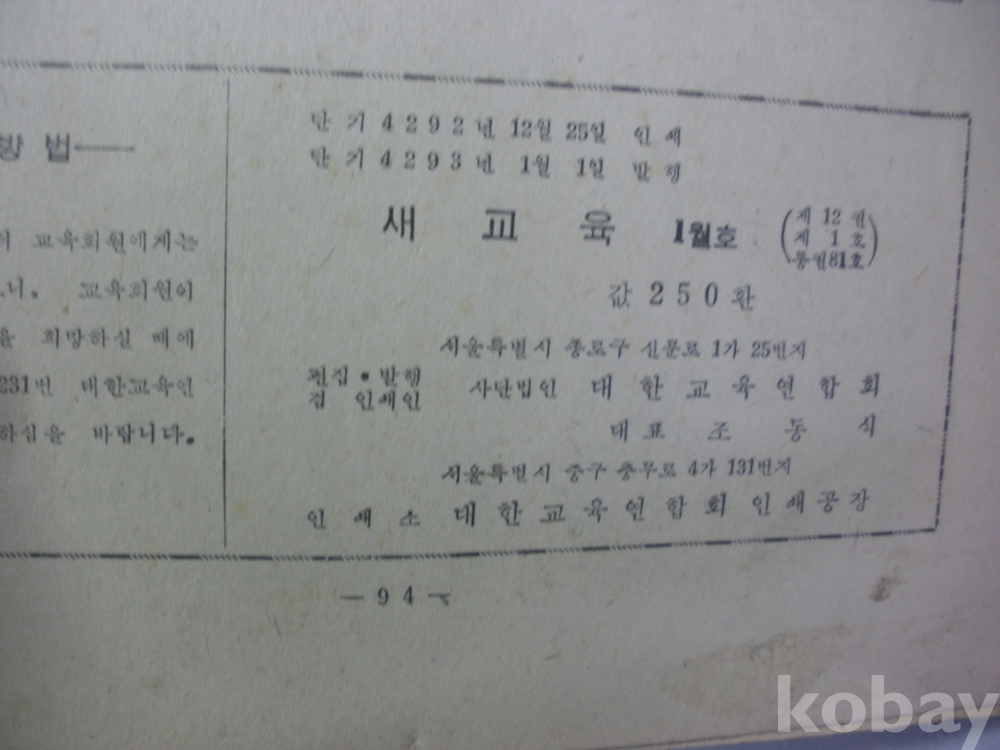 방법──
교육회원에게는
니, 교육회원이
을 희망하실 때에
231번 대한교육연
하심을 바랍니다.
단기 4292년 12월 25일 인쇄
단기 4293년 1월 1일 발행
새교육 1월호 (제 12 권 제 1 호 통권81호)
값 250환
서울특별시 종로구 신문로 1가 25번지
편집•발행 겸 인쇄인 사단법인 대한교육연합회
대표 조동식
서울특별시 중구 충무로 4가 131번지
인쇄소 대한교육연합회인쇄공장
— 94 —
kobay